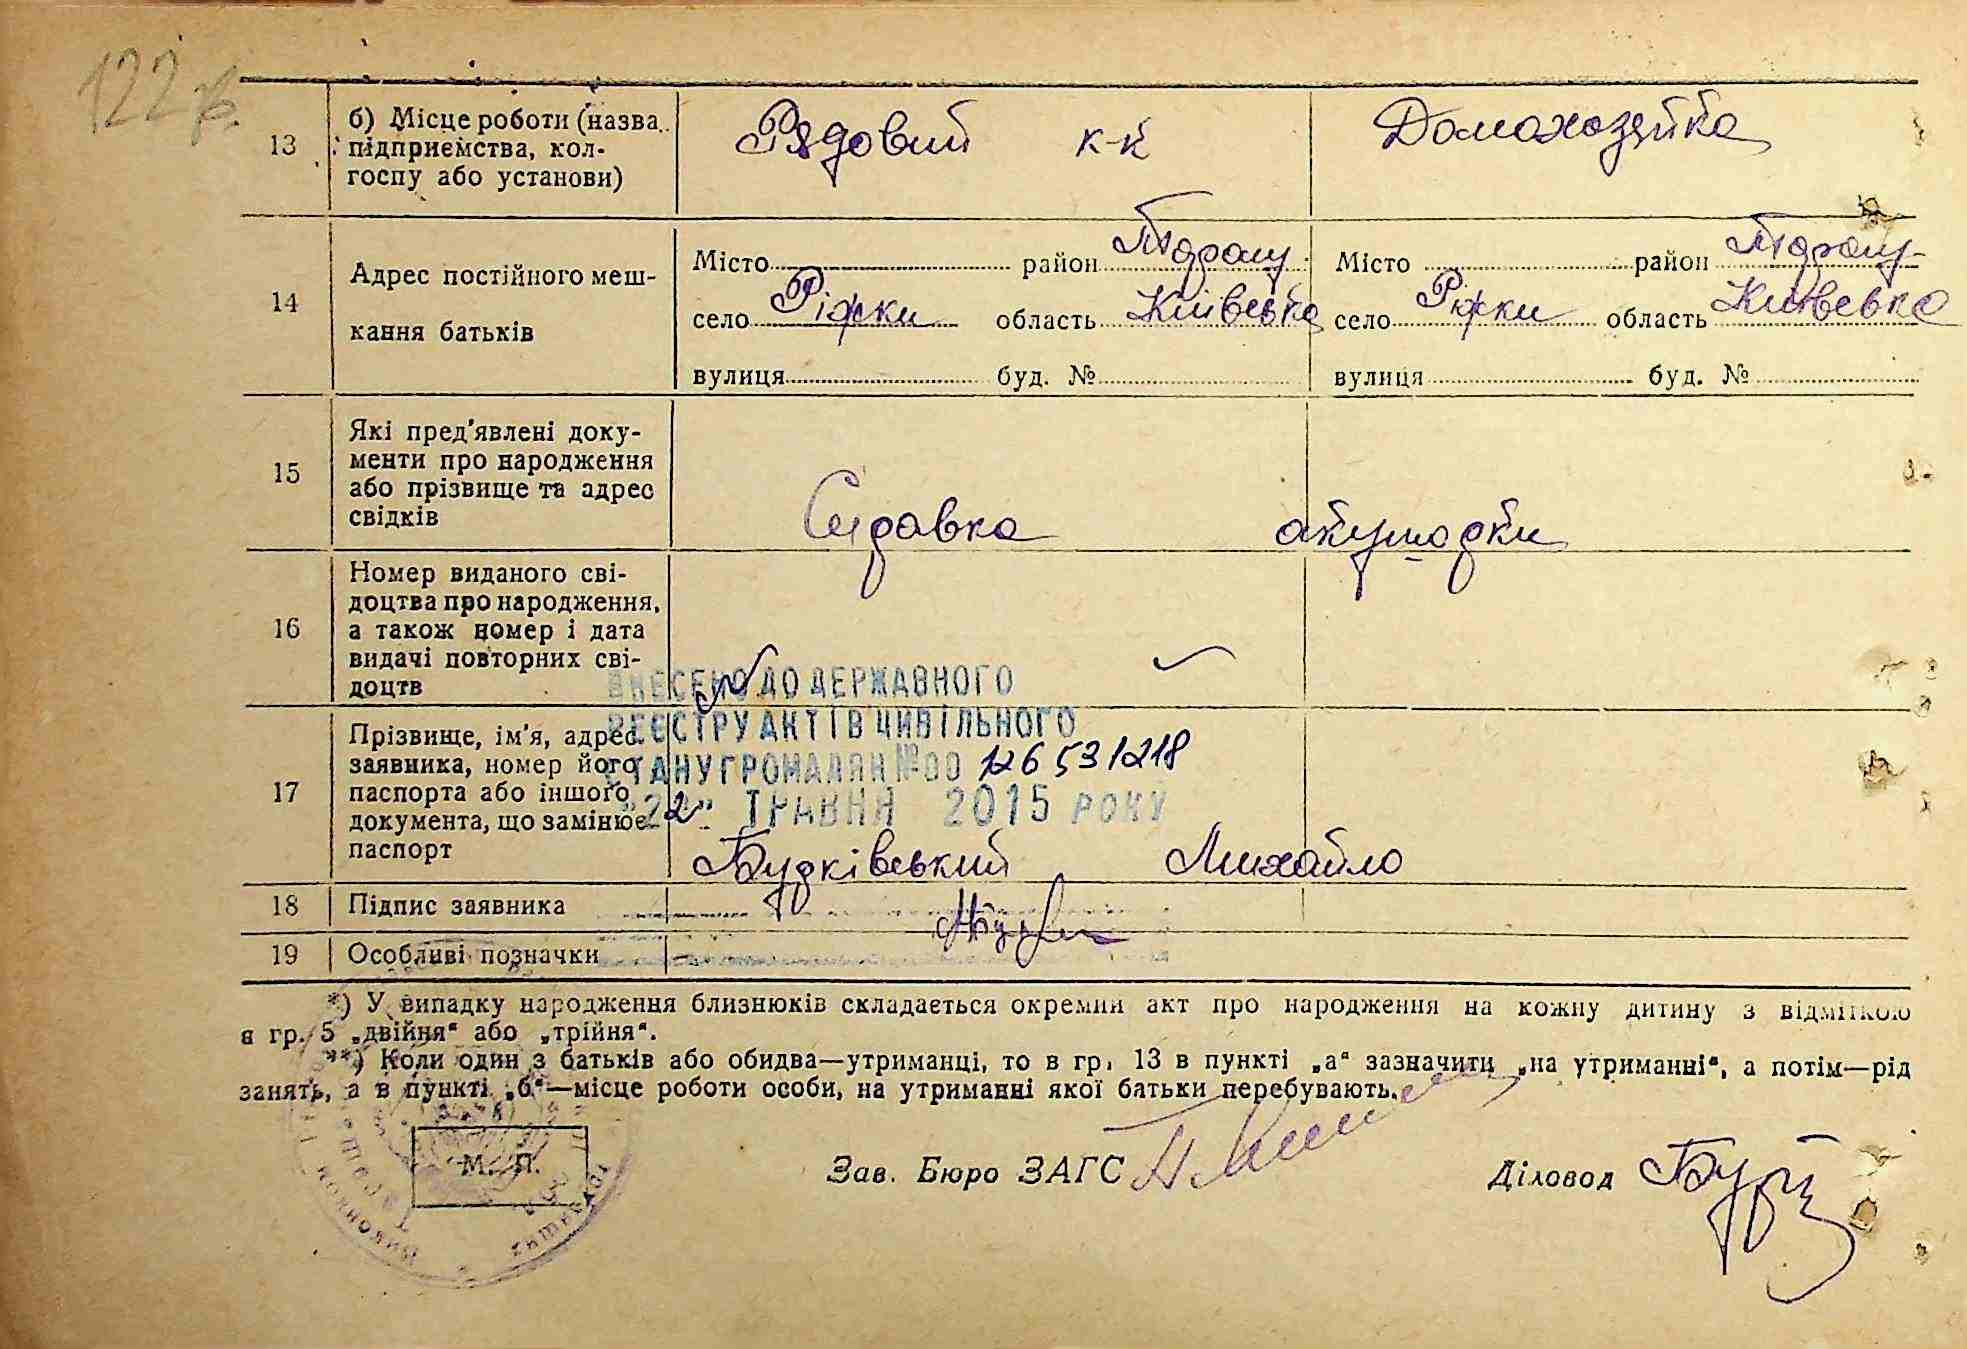 122
13
б) Місце роботи (назва
підприємства, кол-
госпу або установи)
Рядовий к-к
Домохозяйка
14
Адрес постійного меш-
кання батьків
Місто район
село Ріжки область Київська
вулиця буд. №
Місто район
село Ріжки область Київська
вулиця буд. №
15
Які пред'явлені доку-
менти про народження
або прізвище та адрес
свідків
Справка акушорки
16
Номер виданого сві-
доцтва про народження,
а також номер і дата
видачі повторних сві-
доцтв
ВНЕСЕНО ДО ДЕРЖАВНОГО
РЕЄСТРУ АКТІВ ЦИВІЛЬНОГО
СТАНУ ГРОМАДЯН №00 126531218
"22" ТРАВНЯ 2015 РОКУ
17
Прізвище, ім'я, адрес
заявника, номер його
паспорта або іншого
документа, що замінює
паспорт
Будківський Михайло
18 Підпис заявника
19 Особливі позначки
*) У випадку народження близнюків складається окремий акт про народження на кожну дитину з відміткою
в гр. 5 „двійня“ або „трійня“.
**) Коли один з батьків або обидва—утриманці, то в гр. 13 в пункті „а“ зазначити „на утриманні“, а потім—рід
занять, а в пункті „б“—місце роботи особи, на утриманні якої батьки перебувають.
М. П.
Зав. Бюро ЗАГС
Діловод